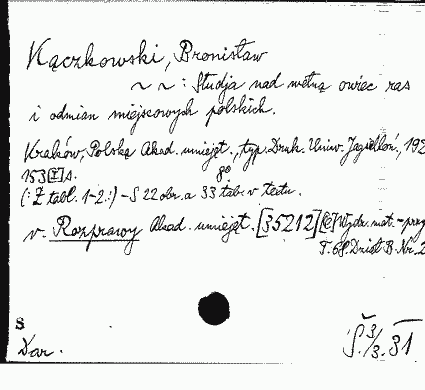 Kączkowski, Bronisław
~ ~ : Studja nad wełną owiec ras
i odmian miejscowych polskich.
Kraków, Polska Akad. umiejęt., typ. Druk. Uniw. Jagielloń., 192
153 [2] s. 8º
(: Z tabl. 1-2 :) - S 22 obr. a 33 tab. v textu.
v. Rozprawy Akad. umiejęt. [35212] Wydz. mat.-przy
T. 68. Dział B. Nr. 2
S
Dar. Š. 3/3. 31